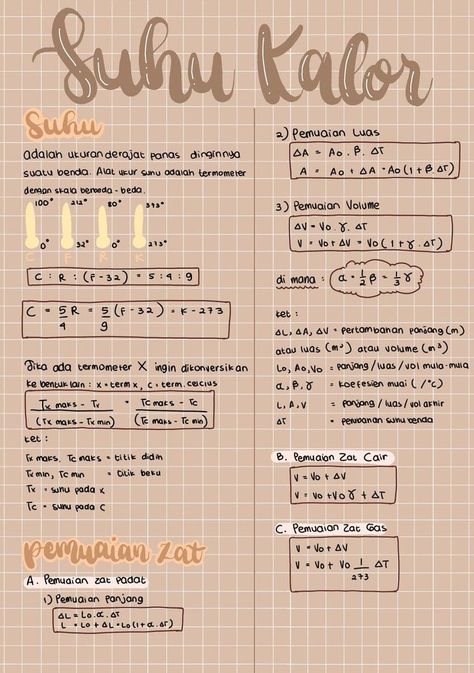 Suhu Kalor
Suhu
Adalah ukuran derajat panas dinginnya
suatu benda. Alat ukur suhu adalah termometer
dengan skala berbeda-beda.
100° 212° 80° 373°
0° 32° 0° 273°
C F R K
C : R : (F-32) = 5 : 4 : 9
C = 5/4 R = 5/9 (F-32) = K-273
Jika ada termometer X ingin dikonversikan
ke bentuk lain : x = term x, c = term. celcius
Tx maks - Tx / (Tx maks - Tx min) = Tc maks - Tc / (Tc maks - Tc min)
ket :
Tx maks, Tc maks = titik didih
Tx min, Tc min = titik beku
Tx = suhu pada x
Tc = suhu pada C
Pemuaian Zat
A. Pemuaian zat padat
1) Pemuaian Panjang
ΔL = Lo.α.ΔT
L = Lo + ΔL = Lo(1+α.ΔT)
2) Pemuaian Luas
ΔA = Ao . β . ΔT
A = Ao + ΔA = Ao(1+β.ΔT)
3) Pemuaian Volume
ΔV = Vo . γ . ΔT
V = Vo + ΔV = Vo(1+γ.ΔT)
di mana : α = 1/2 β = 1/3 γ
ket :
ΔL, ΔA, ΔV = pertambahan panjang (m)
atau luas (m²) atau volume (m³)
Lo, Ao, Vo = panjang/luas/vol mula-mula
α, β, γ = koefesien muai (/°C)
L, A, V = panjang/luas/vol akhir
ΔT = perubahan suhu benda
B. Pemuaian Zat Cair
V = Vo + ΔV
V = Vo + Vo γ + ΔT
C. Pemuaian Zat Gas
V = Vo + ΔV
V = Vo + Vo 1/273 ΔT